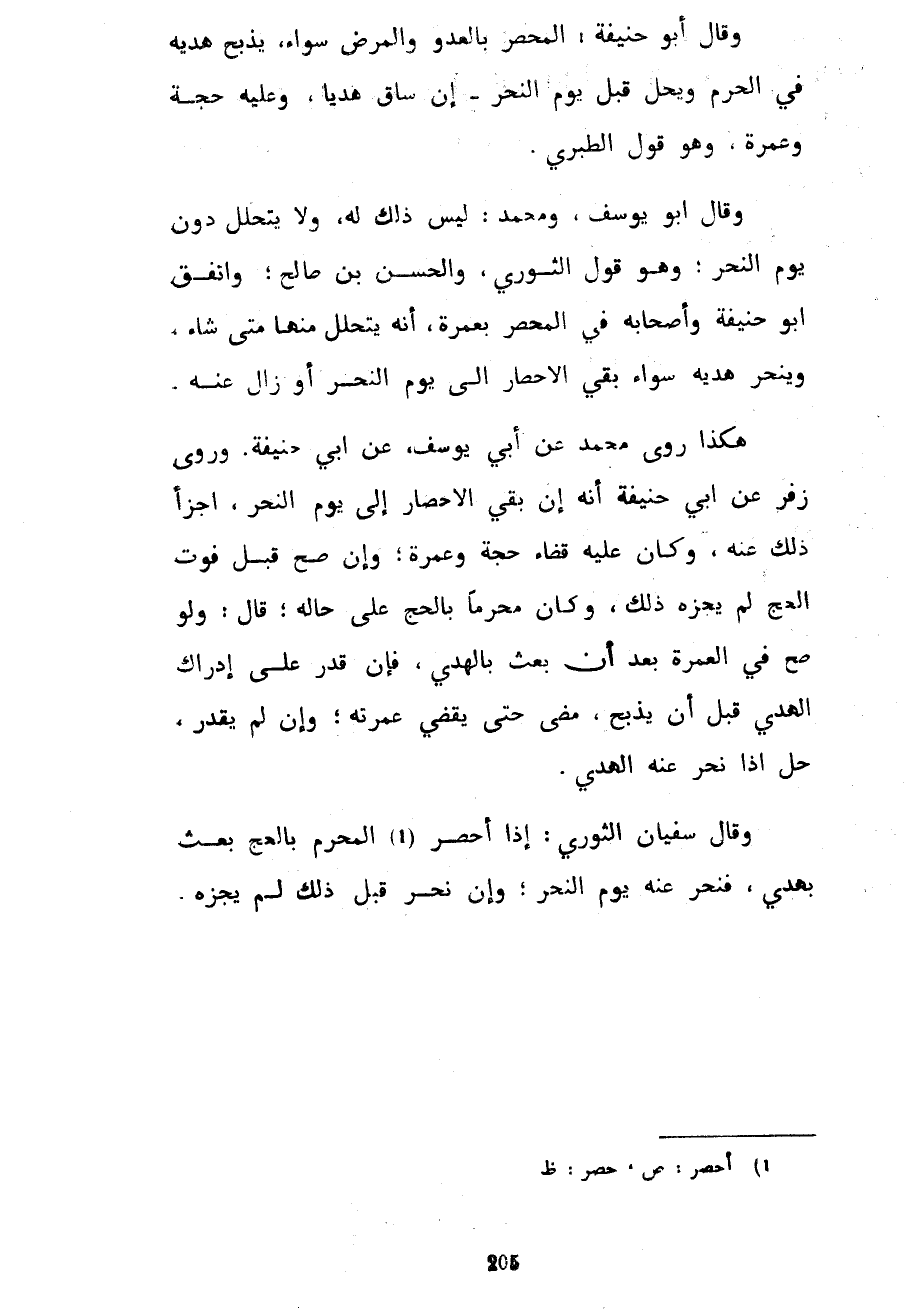 وقال أبو حنيفة : المحصر بالعدو والمرض سواء، يذبح هديه
في الحرم ويحل قبل يوم النحر ـ إن ساق هديا ، وعليه حجـة
وعمرة ، وهو قول الطبري .
وقال ابو يوسف ، ومحمد : ليس ذلك له، ولا يتحلل دون
يوم النحر : وهـو قول الثـوري ، والحسـن بن صالح ؛ واتفـق
ابو حنيفة وأصحابه في المحصر بعمرة، أنه يتحلل منهـا متى شاء ،
وينحر هديه سواء بقي الاحصار الـى يوم النحـر أو زال عنـه .
هكذا روى محمد عن أبي يوسف، عن ابي حنيفة. وروى
زفر عن ابي حنيفة أنه إن بقي الاحصار إلى يوم النحر ، اجزأ
ذلك عنه ، وكـان عليه قضاء حجة وعمرة ؛ وإن صـح قبـل فوت
الحج لم يجزه ذلك ، وكـان محرماً بالحج على حاله ؛ قال : ولو
صح في العمرة بعد أن بعث بالهدي ، فإن قدر علـى إدراك
الهدي قبل أن يذبح ، مضى حتى يقضي عمرته ؛ وإن لم يقدر ،
حل اذا نحر عنه الهدي .
وقال سفيان الثوري : إذا أحصـر (1) المحرم بالحج بعـث
بهدي ، فنحر عنه يوم النحر ؛ وإن نحـر قبل ذلك لـم يجزه .
1) أحصر : ص ، حصر : ظ
205